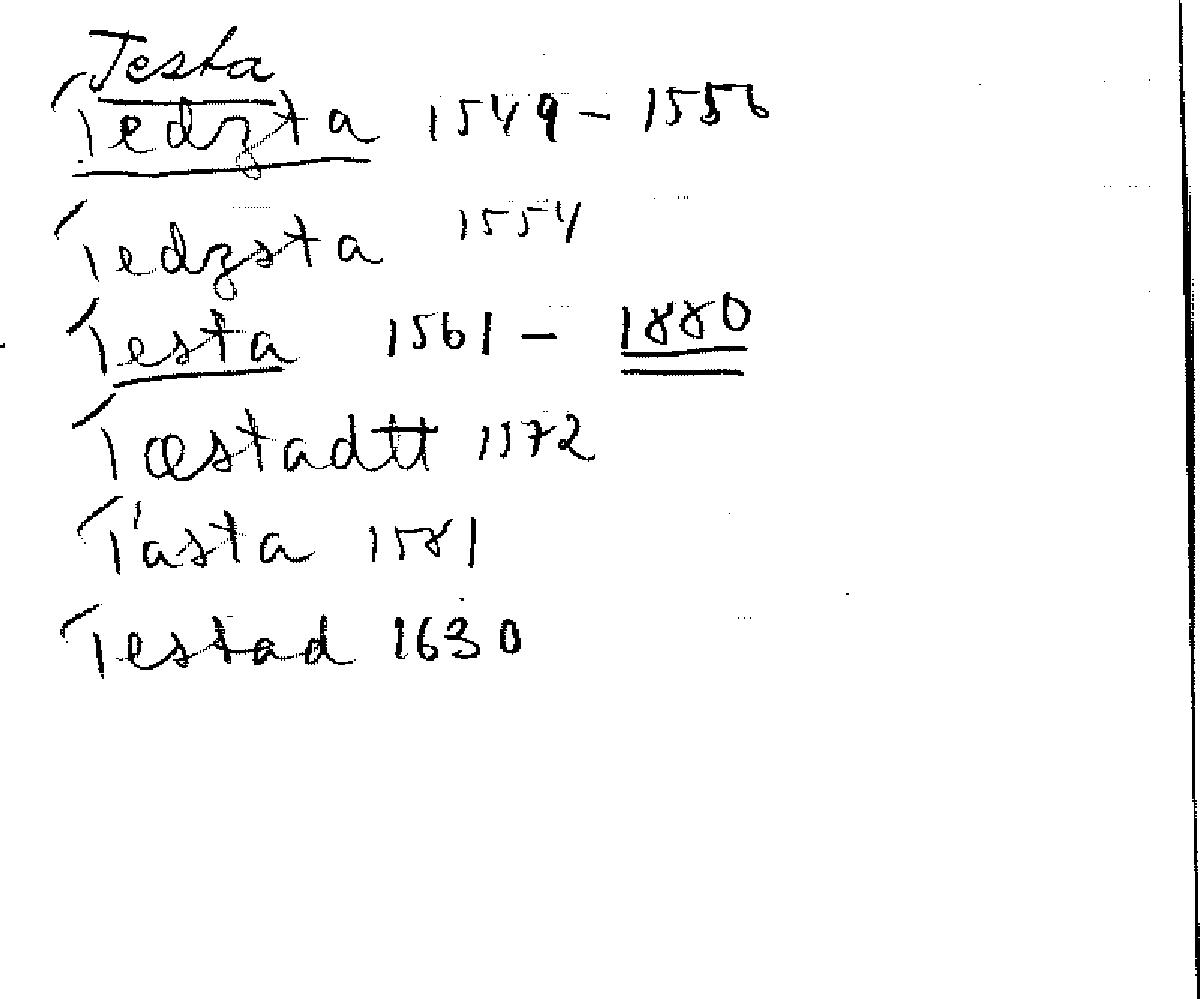 Testa
Tedzta 1549 - 1556
Tedzsta 1554
Testa 1561 - 1880
Tœstadtt 1572
Tasta 1581
Testad 1630